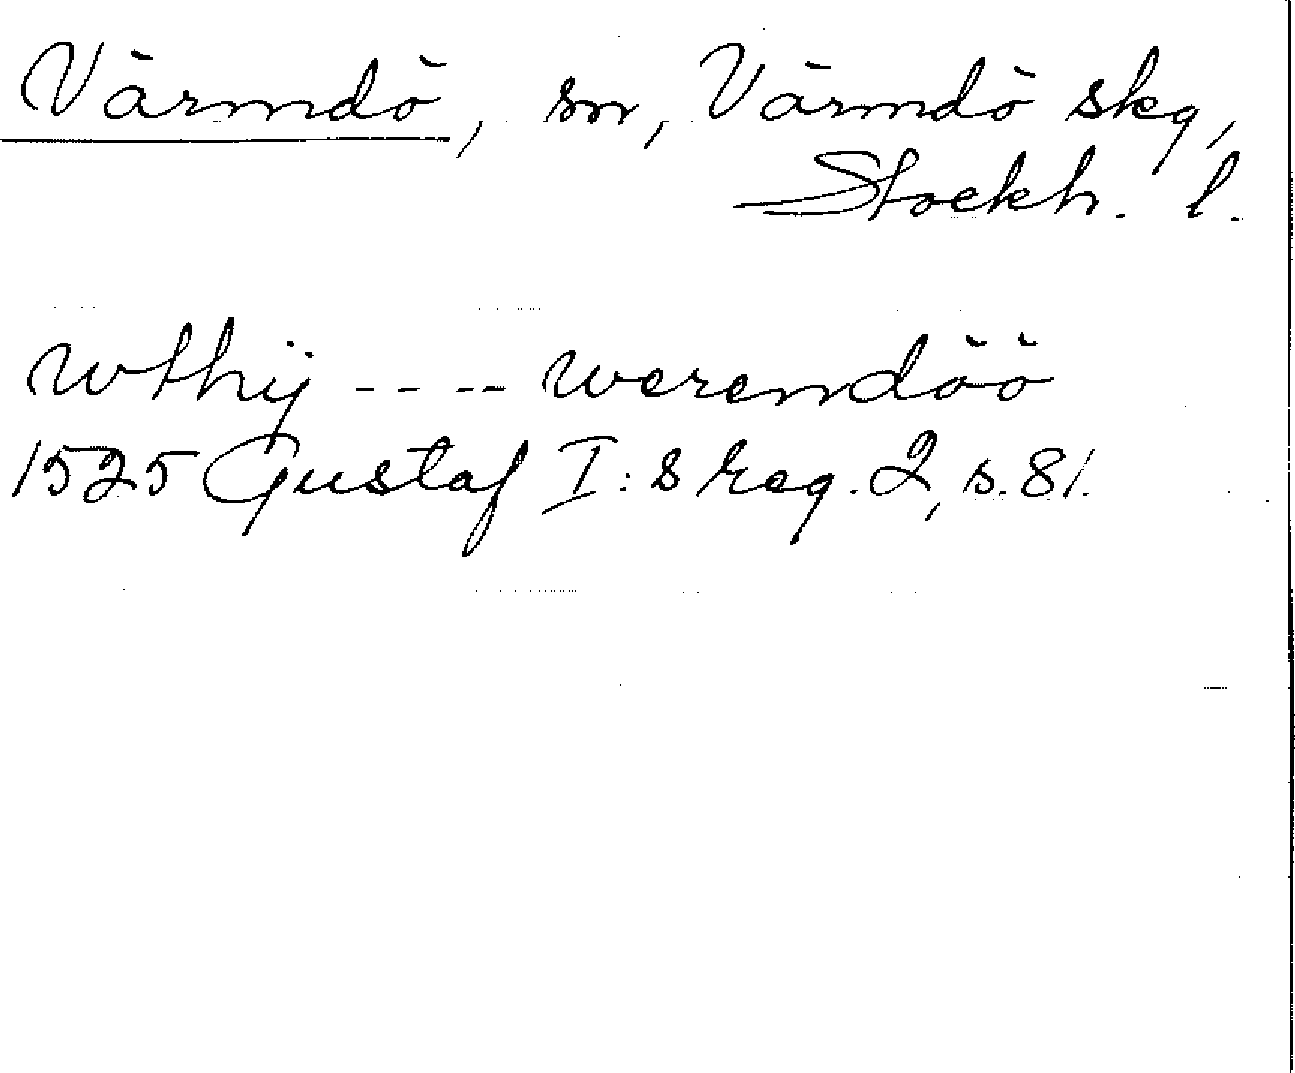 Värmdö, sn, Värmdö skg,
Stockh. l.
wthij - - - - werendöö
1525 Gustaf I:s reg. 2, s. 81.